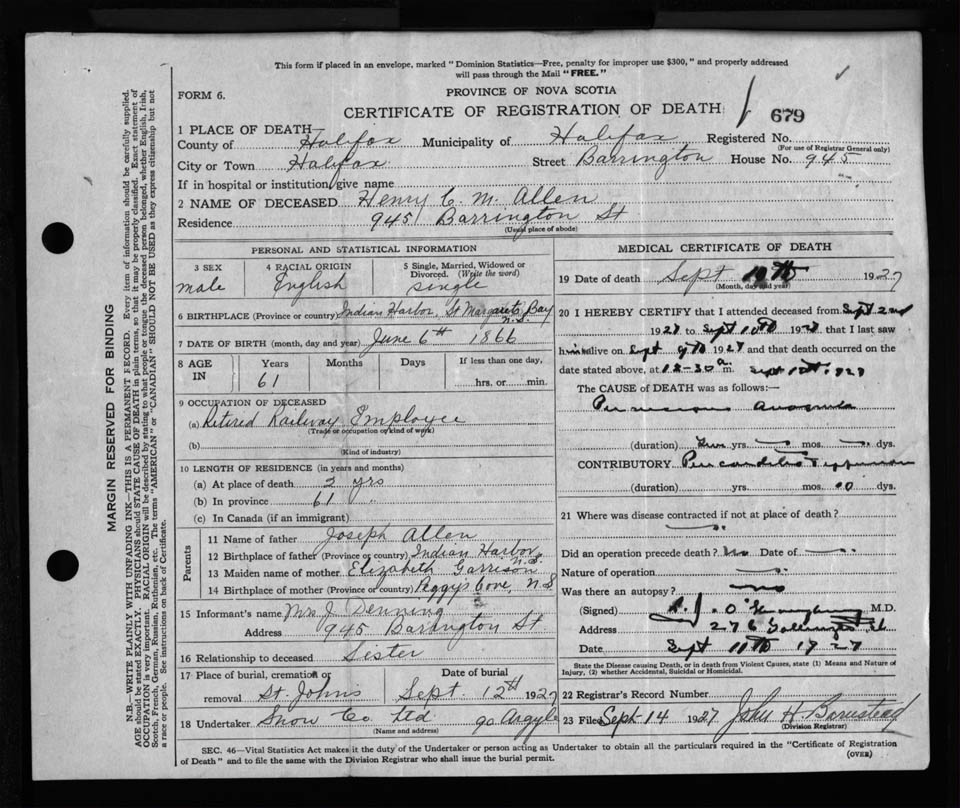 This form if placed in an envelope, marked "Dominion Statistics—Free, penalty for improper use $300," and properly addressed
will pass through the Mail "FREE."
FORM 6.
PROVINCE OF NOVA SCOTIA
CERTIFICATE OF REGISTRATION OF DEATH
679
1 PLACE OF DEATH
County of Halifax Municipality of Halifax Registered No.
(For use of Registrar General only)
City or Town Halifax Street Barrington House No. 945
If in hospital or institution, give name
2 NAME OF DECEASED Henry C. M. Allen
Residence 945 Barrington St
(Usual place of abode)
PERSONAL AND STATISTICAL INFORMATION
3 SEX 4 RACIAL ORIGIN 5 Single, Married, Widowed or
Divorced. (Write the word)
male English single
6 BIRTHPLACE (Province or country) Indian Harbor, St Margarets Bay
N.S.
7 DATE OF BIRTH (month, day and year) June 6th 1866
8 AGE IN Years Months Days If less than one day,
61 hrs. or min.
9 OCCUPATION OF DECEASED
(a) Retired Railway Employee
(Trade or occupation or kind of work)
(b)
(Kind of industry)
10 LENGTH OF RESIDENCE (in years and months)
(a) At place of death 2 yrs
(b) In province 61 "
(c) In Canada (if an immigrant)
Parents
11 Name of father Joseph Allen
12 Birthplace of father (Province or country) Indian Harbor N.S.
13 Maiden name of mother Elizabeth Garrison
14 Birthplace of mother (Province or country) Peggy's Cove, N.S
15 Informant's name Mrs J. Denning
Address 945 Barrington St.
16 Relationship to deceased Sister
17 Place of burial, cremation or Date of burial
removal St. Johns Sept. 12th 1927
18 Undertaker Snow Co. Ltd 90 Argyle
(Name and address)
MEDICAL CERTIFICATE OF DEATH
19 Date of death Sept 10th 1927
(Month, day and year)
20 I HEREBY CERTIFY that I attended deceased from Sept 2nd
1927 to Sept 10th 1927 that I last saw
him alive on Sept 9th 1927 and that death occurred on the
date stated above, at 12-30 a m. Sept 10th 1927
The CAUSE of DEATH was as follows:—
Pernicious
(duration) yrs. mos. dys.
CONTRIBUTORY
(duration) yrs. mos. 10 dys.
21 Where was disease contracted if not at place of death?
Did an operation precede death? No Date of
Nature of operation
Was there an autopsy? no
(Signed) M.D.
Address 276 St.
Date Sept 11th 1927
State the Disease causing Death, or in death from Violent Causes, state (1) Means and Nature of
Injury, (2) whether Accidental, Suicidal or Homicidal.
22 Registrar's Record Number
23 Filed Sept 14 1927 John H
(Division Registrar)
SEC. 46—Vital Statistics Act makes it the duty of the Undertaker or person acting as Undertaker to obtain all the particulars required in the "Certificate of Registration
of Death" and to file the same with the Division Registrar who shall issue the burial permit.
(OVER)
MARGIN RESERVED FOR BINDING
N.B.—WRITE PLAINLY WITH UNFADING INK—THIS IS A PERMANENT RECORD. Every item of information should be carefully supplied.
AGE should be stated EXACTLY. PHYSICIANS should STATE CAUSE OF DEATH in plain terms, so that it may be properly classified. Exact statement of
OCCUPATION is very important. RACIAL ORIGIN will be described by stating to what people or tongue the deceased person belonged, whether English, Irish,
Scotch, French, German, Russian, Ruthenian, etc. The terms "AMERICAN" or "CANADIAN" SHOULD NOT BE USED as they express citizenship but not
a race or people. See instructions on back of Certificate.